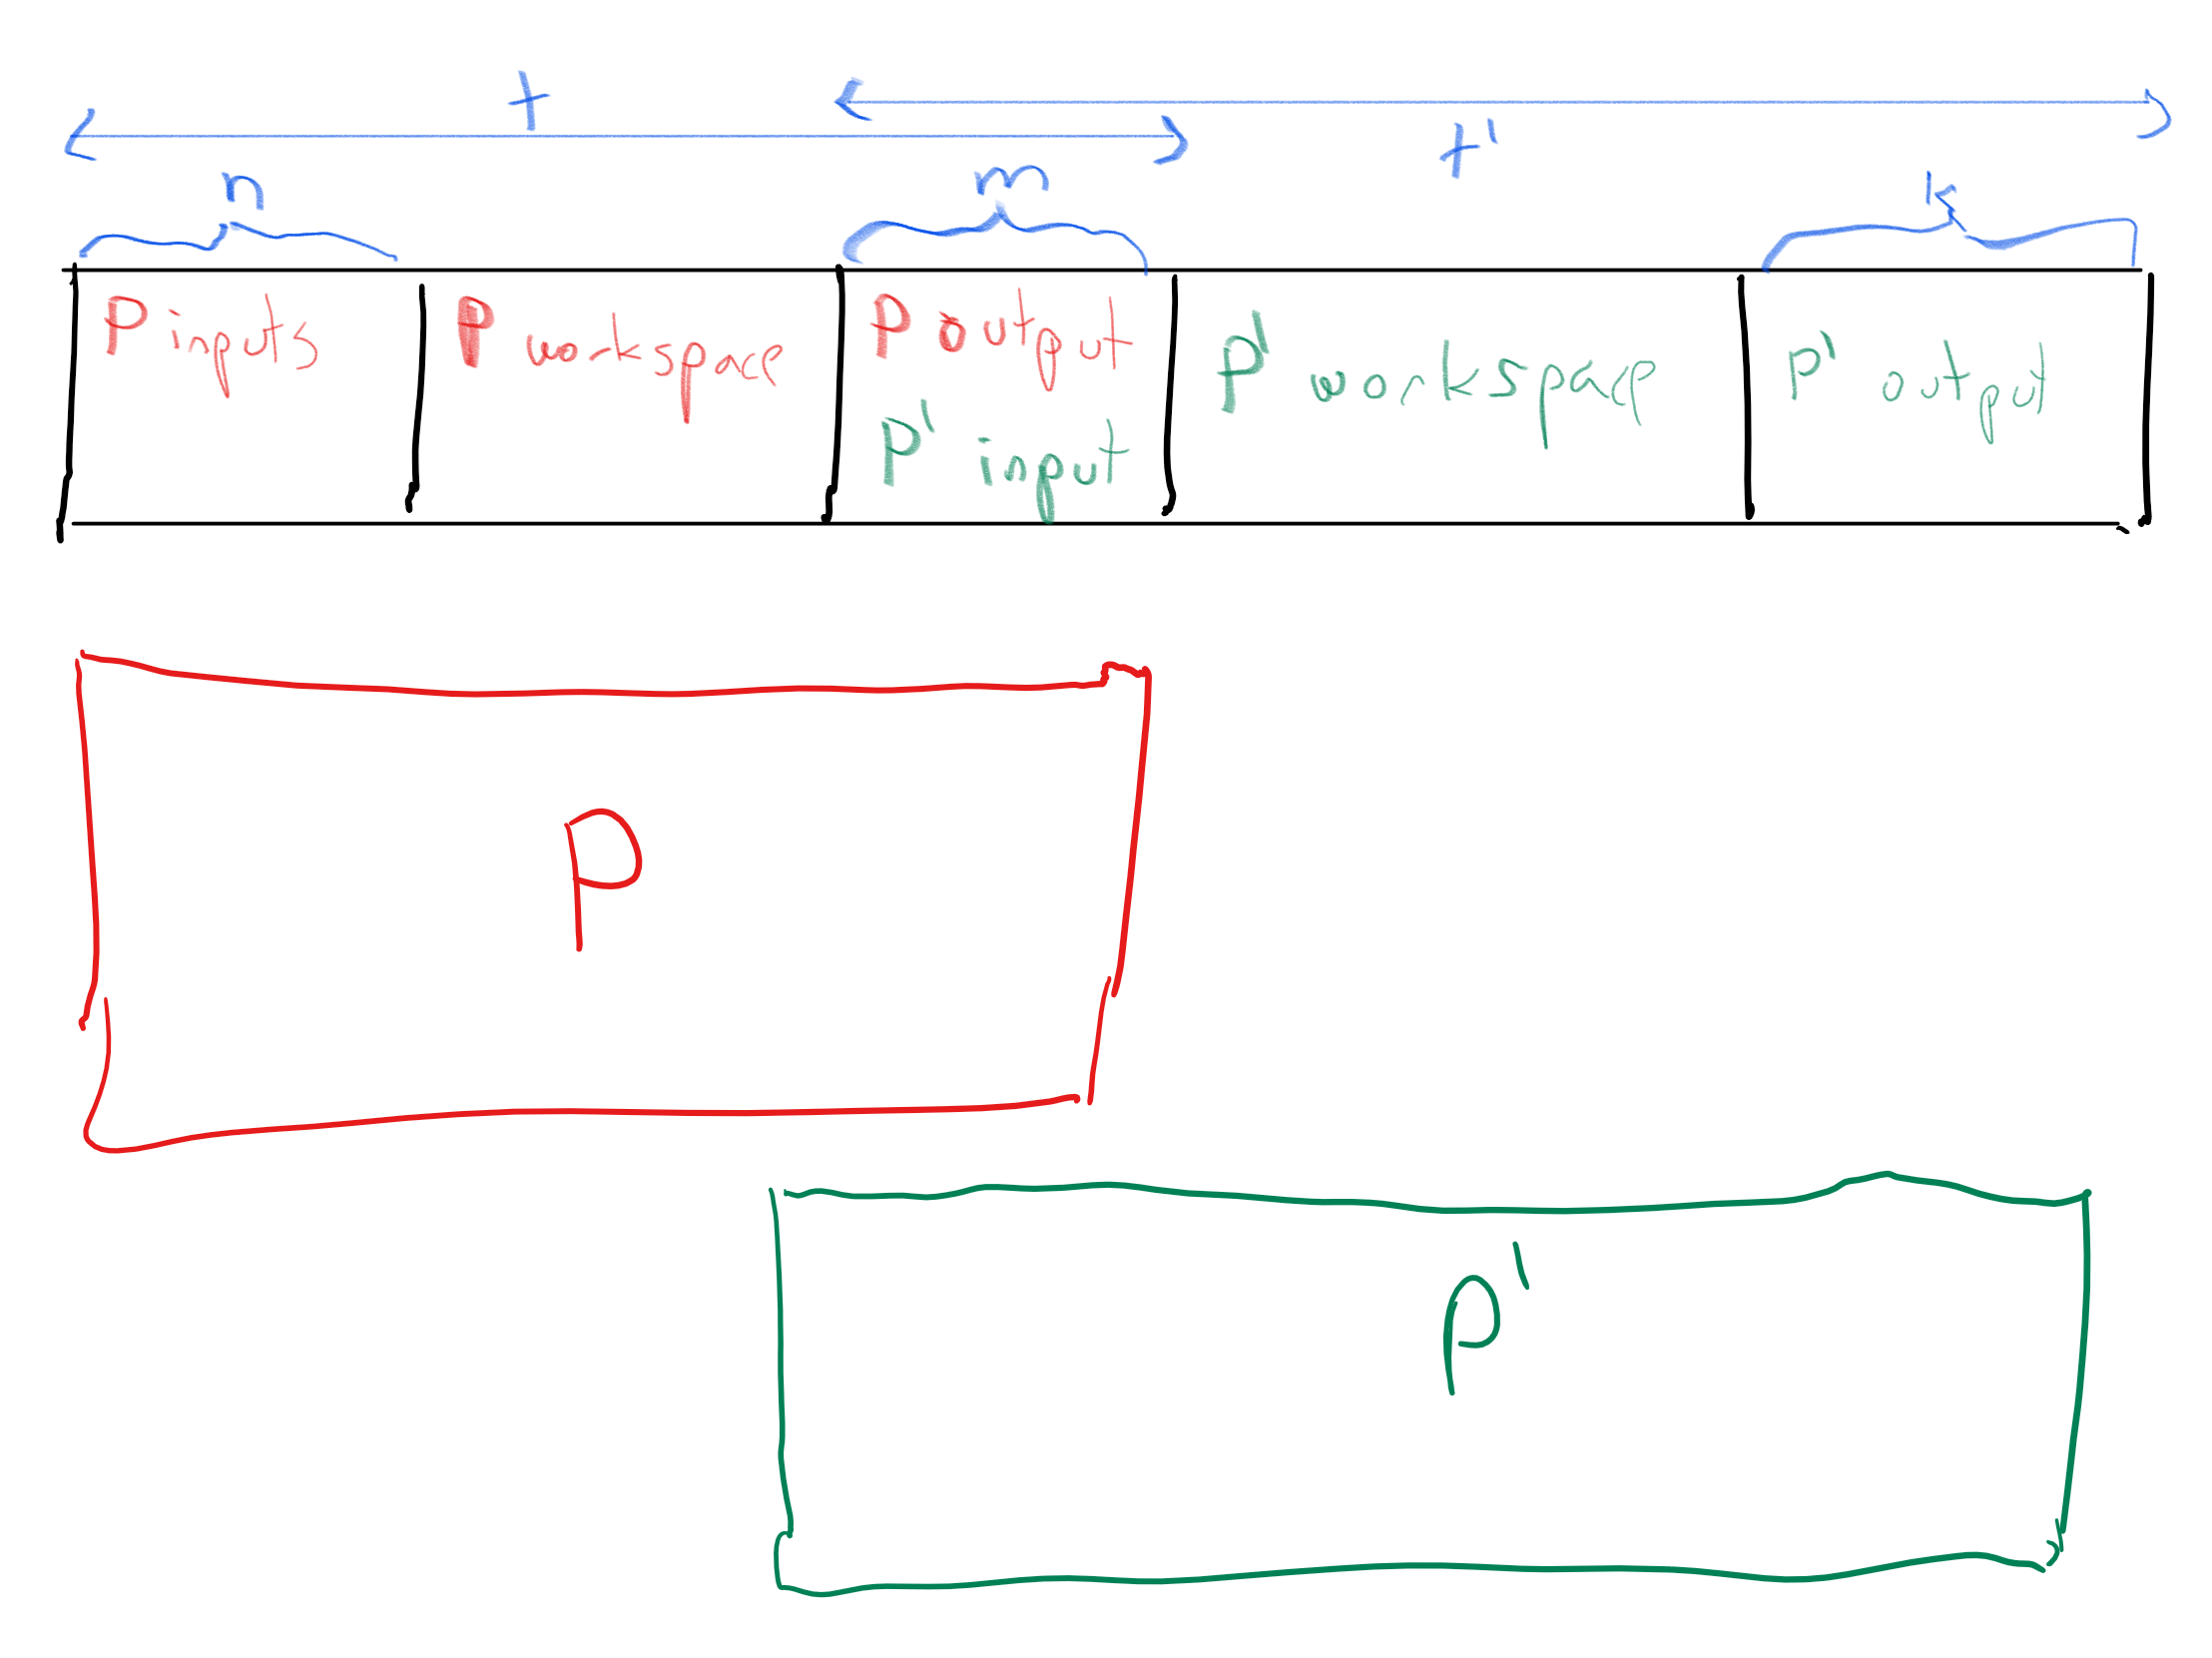 t
t'
n
m
k
P inputs
P workspace
P output
P' input
P' workspace
P' output
P
P'